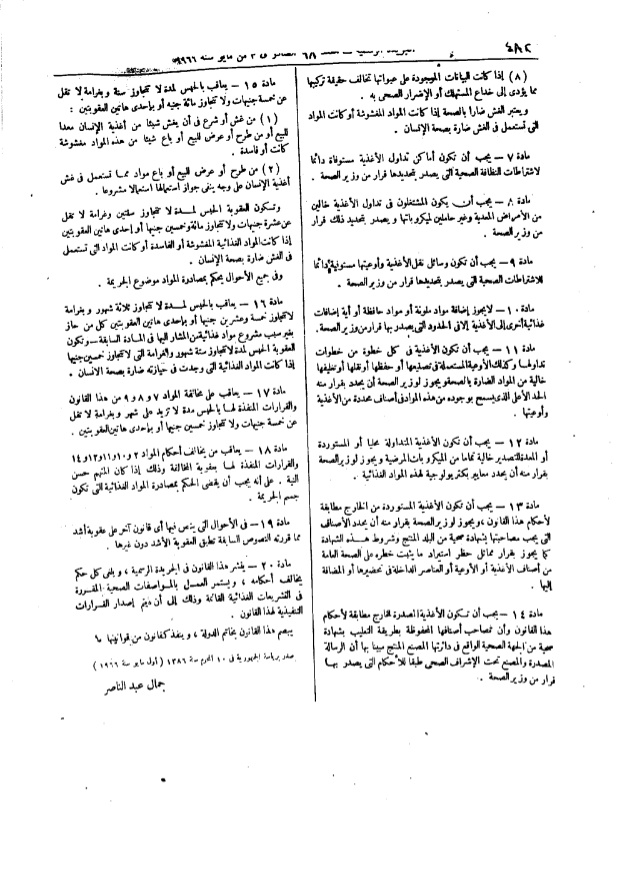 ٤٨٢
(٨) إذا كانت البيانات الموجودة على عبواتها تخالف حقيقة تركيبها
مما يؤدى إلى خداع المستهلك أو الإضرار الصحى به .
ويعتبر الغش ضارا بالصحة إذا كانت المواد المغشوشة أو كانت المواد
التى تستعمل فى الغش ضارة بصحة الإنسان .
مادة ٧ – يجب أن تكون أماكن تداول الأغذية مستوفاة دائما
لاشتراطات النظافة الصحية التى يصدر بتحديدها قرار من وزير الصحة .
مادة ٨ – يجب أن يكون المشتغلون فى تداول الأغذية خالين
من الأمراض المعدية وغير حاملين لميكروباتها ويصدر بتحديد ذلك قرار
من وزير الصحة .
مادة ٩ – يجب أن تكون وسائل نقل الأغذية وأوعيتها مستوفية دائما
للاشتراطات الصحية التى يصدر بتحديدها قرار من وزير الصحة .
مادة ١٠ – لا يجوز إضافة مواد ملونة أو مواد حافظة أو أية إضافات
غذائية أخرى إلى الأغذية إلا فى الحدود التى يصدر بها قرار من وزير الصحة .
مادة ١١ – يجب أن تكون الأغذية فى كل خطوة من خطوات
تداولها وكذلك الأوعية المستعملة فى تصنيعها أو حفظها أو نقلها أو تغليفها
خالية من المواد الضارة بالصحة ويجوز لوزير الصحة أن يحدد بقرار منه
الحد الأعلى الذى يسمح بوجوده من هذه المواد فى أصناف محددة من الأغذية
وأوعيتها .
مادة ١٢ – يجب أن تكون الأغذية المتداولة محليا أو المستوردة
أو المعدة للتصدير خالية تماما من الميكروبات المرضية ويجوز لوزير الصحة
بقرار منه أن يحدد معايير بكتريولوجية لهذه المواد الغذائية .
مادة ١٣ – يجب أن تكون الأغذية المستوردة من الخارج مطابقة
لأحكام هذا القانون ، ويجوز لوزير الصحة بقرار منه أن يحدد الأصناف
التى يجب مصاحبتها بشهادة صحية من البلد المنتج وشروط هذه الشهادة
كما يجوز بقرار مماثل حظر استيراد ما يثبت خطره على الصحة العامة
من أصناف الأغذية أو الأوعية أو العناصر الداخلة فى تحضيرها أو المضافة
إليها .
مادة ١٤ – يجب أن تكون الأغذية المصدرة للخارج مطابقة لأحكام
هذا القانون وأن تصاحب أصنافها المحفوظة بطريقة التعليب بشهادة
صحية من الجهة الصحية الواقع فى دائرتها المصنع المنتج مبينا بها أن الرسالة
المصدرة والمصنع تحت الإشراف الصحى طبقا للأحكام التى يصدر بها
قرار من وزير الصحة .
مادة ١٥ – يعاقب بالحبس لمدة لا تتجاوز سنة وبغرامة لا تقل
عن خمسة جنيهات ولا تتجاوز مائة جنيه أو بإحدى هاتين العقوبتين :
(١) من غش أو شرع فى أن يغش شيئا من أغذية الإنسان معدا
للبيع أو من طرح أو عرض للبيع أو باع شيئا من هذه المواد مغشوشة
كانت أو فاسدة .
(٢) من طرح أو عرض للبيع أو باع مواد مما تستعمل فى غش
أغذية الإنسان على وجه ينفى جواز استعمالها استعمالا مشروعا .
وتكون العقوبة الحبس لمدة لا تتجاوز سنتين وغرامة لا تقل
عن عشرة جنيهات ولا تتجاوز مائة وخمسين جنيها أو إحدى هاتين العقوبتين
إذا كانت المواد الغذائية المغشوشة أو الفاسدة أو كانت المواد التى تستعمل
فى الغش ضارة بصحة الإنسان .
وفى جميع الأحوال يحكم بمصادرة المواد موضوع الجريمة .
مادة ١٦ – يعاقب بالحبس لمدة لا تتجاوز ثلاثة شهور وبغرامة
لا تتجاوز خمسة وعشرين جنيها أو بإحدى هاتين العقوبتين كل من حاز
بغير سبب مشروع مواد غذائية من المشار إليها فى المادة السابقة – وتكون
العقوبة الحبس لمدة لا تتجاوز ستة شهور والغرامة التى لا تتجاوز خمسين جنيها
إذا كانت المواد الغذائية التى وجدت فى حيازته ضارة بصحة الإنسان .
مادة ١٧ – يعاقب على مخالفة المواد ٧ و ٨ و ٩ من هذا القانون
والقرارات المنفذة لها بالحبس مدة لا تزيد على شهر وبغرامة لا تقل
عن جنيهات ولا تتجاوز خمسين جنيها أو بإحدى هاتين العقوبتين .
مادة ١٨ – يعاقب من يخالف أحكام المواد ٢ و١٠ و١١ و١٢ و١٤
والقرارات المنفذة لها بعقوبة المخالفة وذلك إذا كان المتهم حسن
النية . على أنه يجب أن يقضى الحكم بمصادرة المواد الغذائية التى تكون
جسم الجريمة .
مادة ١٩ – فى الأحوال التى ينص فيها أى قانون آخر على عقوبة أشد
مما قررته النصوص السابقة تطبق العقوبة الأشد دون غيرها .
مادة ٢٠ – ينشر هذا القانون فى الجريدة الرسمية ، ويلغى كل حكم
يخالف أحكامه ، ويستمر العمل بالمواصفات الصحية المقررة
فى التشريعات الغذائية القائمة وذلك إلى أن يتم إصدار القرارات
التنفيذية لهذا القانون .
يبصم هذا القانون بخاتم الدولة ، وينفذ كقانون من قوانينها ،
صدر برياسة الجمهورية فى ١٠ المحرم سنة ١٣٨٦ (أول مايو سنة ١٩٦٦)
جمال عبد الناصر